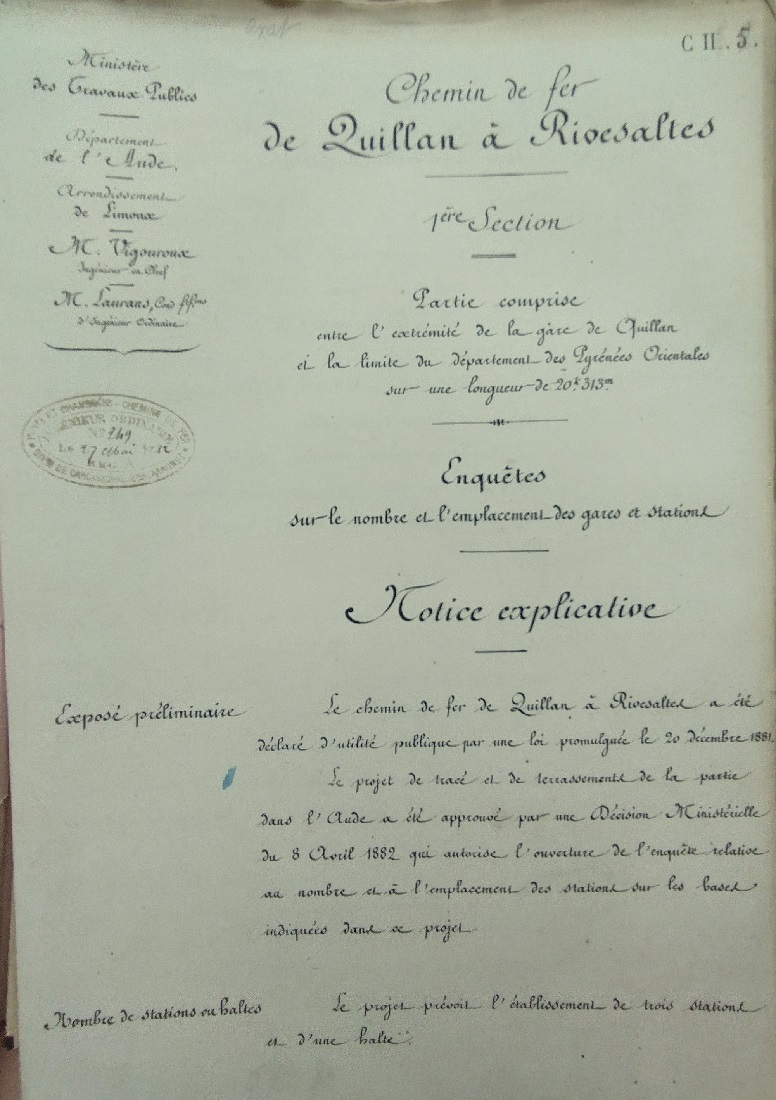 C II. 5.
Ministère
des Travaux Publics
Département
de l'Aude.
Arrondissement
de Limoux
M. Vigouroux
Ingénieur en Chef
M. Laurans, Cond. f. fons
d'Ingénieur Ordinaire
Chemin de fer
de Quillan à Rivesaltes
1ère Section
Partie comprise
entre l'extrémité de la gare de Quillan
et la limite du département des Pyrénées Orientales
sur une longueur de 20k313m
INGÉNIEUR ORDINAIRE
N° 249
Le 27 Mai 1882
Enquêtes
sur le nombre et l'emplacement des gares et stations
Notice explicative
Exposé préliminaire
Le chemin de fer de Quillan à Rivesaltes a été
déclaré d'utilité publique par une loi promulguée le 20 décembre 1881.
Le projet de tracé et de terrassements de la partie
dans l'Aude a été approuvé par une Décision Ministérielle
du 8 Avril 1882 qui autorise l'ouverture de l'enquête relative
au nombre et à l'emplacement des stations sur les bases
indiquées dans ce projet
Nombre de stations ou haltes
Le projet prévoit l'établissement de trois stations
et d'une halte.